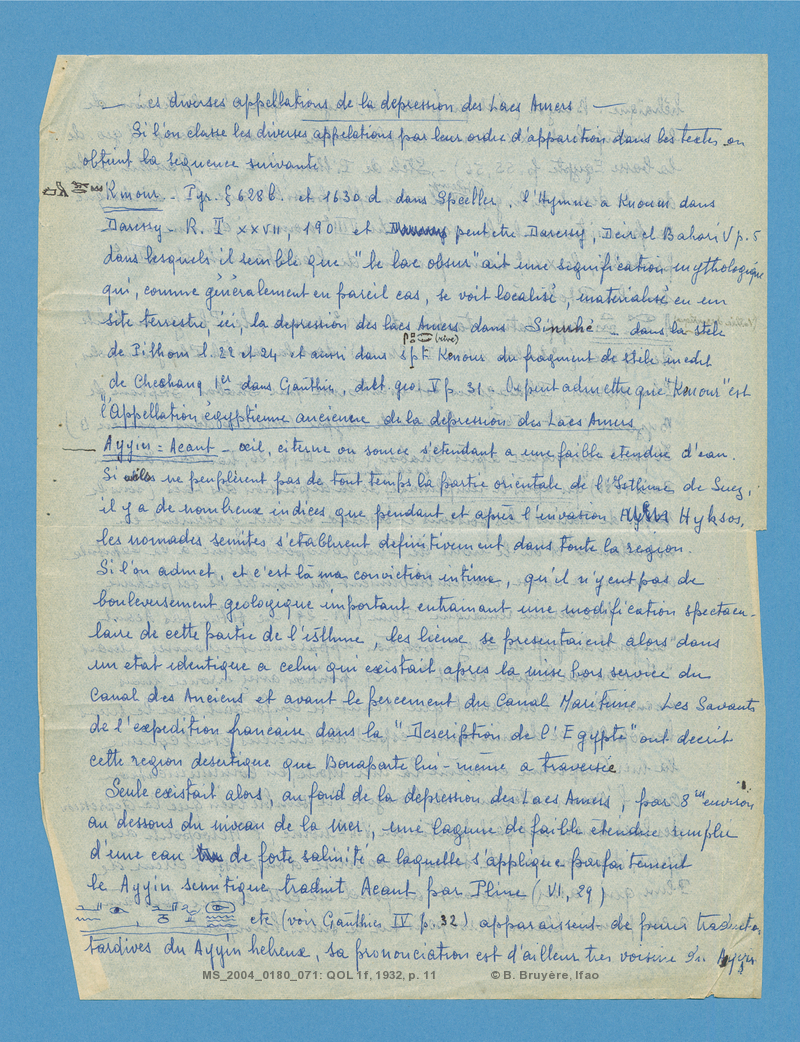 — Les diverses appellations de la depression des Lacs Amers —
Si l'on classe les diverses appelations par leur ordre d'apparition dans les textes on
obtient la sequence suivante
Kmour - Pyr. § 628 b. et 1630 d dans Speeller. l'Hymne a Knoum dans
Daressy - R. T XXVII, 190 et peut etre Daressy, Deir el Bahari V p. 5
dans lesquels il semble que "le lac obsur" ait une signification mythologique
qui, comme généralement en pareil cas, se voit localisé, materialisé en un
site terrestre, ici, la depression des lacs Amers dans Sinuhé - dans la stele
(rive)
de Pithom l. 22 et 24 et aussi dans spt Kenour du fragment de stele inedit
de Chechanq 1er dans Gauthier, dict. geo. V p. 31 - On peut admettre que "Kenour" est
l'Appellation égyptienne ancienne de la depression des Lacs Amers
— Ayyin = Acant - œil, citerne ou source s'etendant a une faible etendue d'eau.
Si ne peuplèrent pas de tout temps la partie orientale de l'Isthme de Suez,
il y a de nombreux indices que pendant et après l'invasion Hyksos,
les nomades semites s'etablirent definitivement dans toute la region.
Si l'on admet, et c'est là ma conviction intime, qu'il n'y eut pas de
bouleversement geologique important entrainant une modification spectacu-
laire de cette partie de l'isthme, les lieux se presentaient alors dans
un etat identique a celui qui existait apres la mise hors service du
Canal des Anciens et avant le percement du Canal Maritime. Les Savants
de l'expedition francaise dans la "Description de l'Egypte" ont decrit
cette region desertique que Bonaparte lui-même a traversée
Seule existait alors, au fond de la depression des Lacs Amers, par 8m environ
au dessous du niveau de la mer, une lagune de faible etendue remplie
d'une eau de forte salinité a laquelle s'applique parfaitement
le Ayyin semitique traduit Acant par Pline (VI, 29)
, etc (voir Gauthier IV p. 32) apparaissent de pures traduction
tardives du Ayyin hebreux, sa prononciation est d'ailleur tres voisine du Ayyin
MS_2004_0180_071: QOL 1f, 1932, p. 11 © B. Bruyère, Ifao